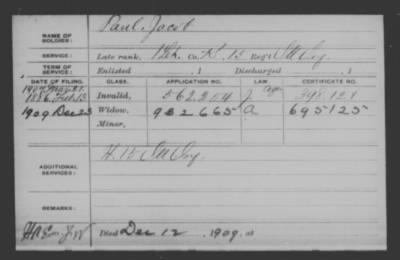 NAME OF SOLDIER: Paul, Jacob
SERVICE: Late rank, Co. K, 15 Reg't Ill Cav.
TERM OF SERVICE: Enlisted , 1 Discharged , 1
DATE OF FILING. CLASS. APPLICATION NO. LAW. CERTIFICATE NO.
1886 Feb 13 Invalid, 562204
1909 Dec 23 Widow, 932665 A 695125
Minor,
ADDITIONAL SERVICES: H. 15 Ill Cav.
REMARKS:
Died Dec 12, 1909, at